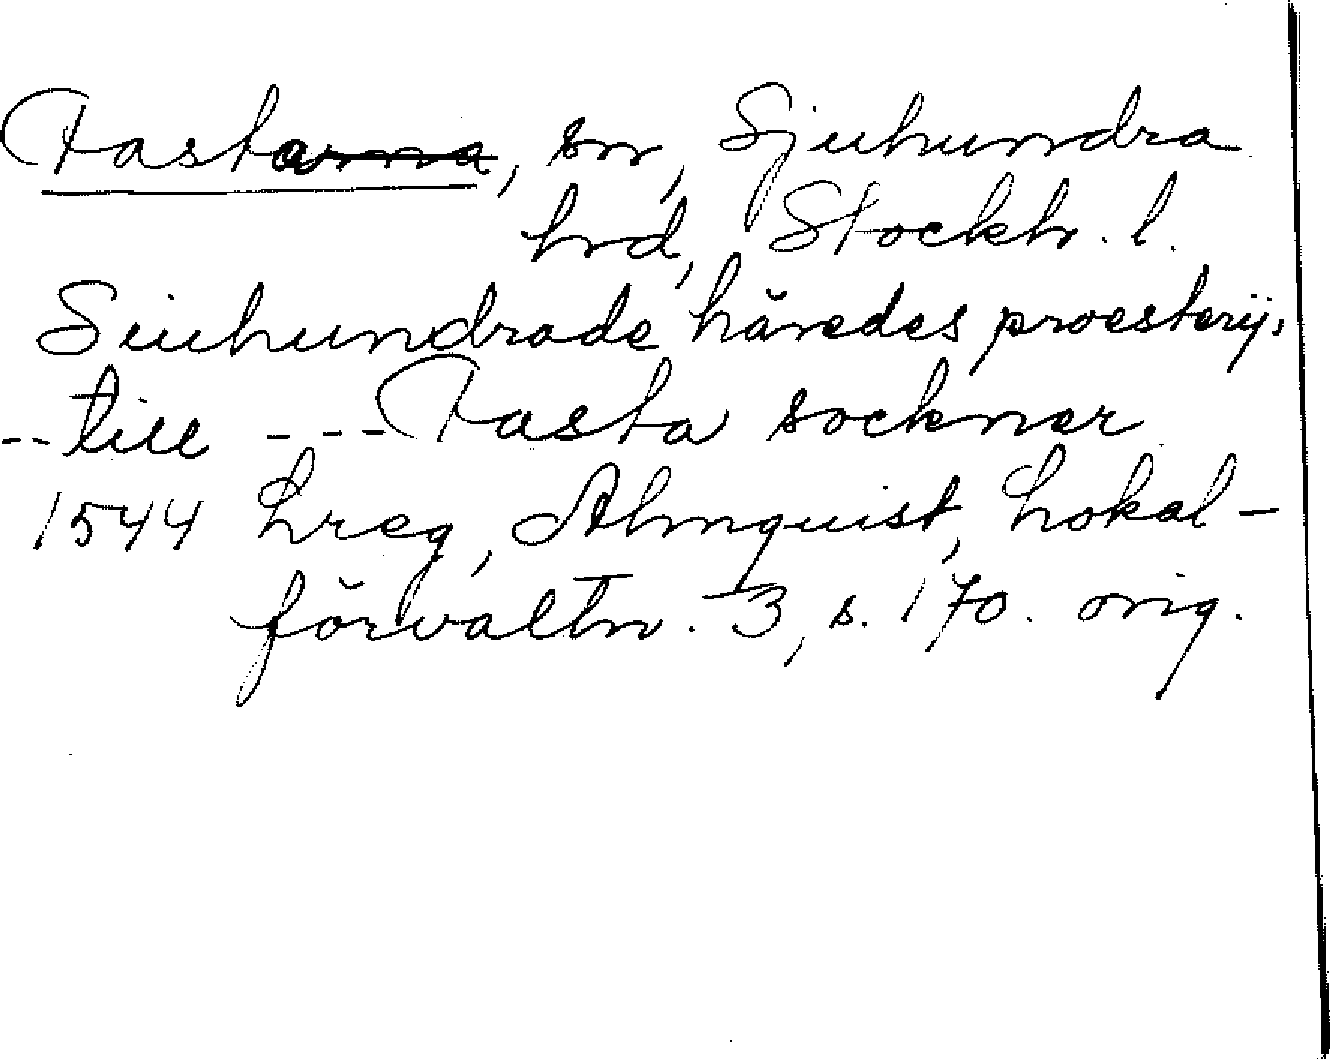 Fasta̶r̶n̶a̶, sn, Sjuhundra
hrd, Stockh. l.
Siuhundrade häredes proesterij,
-- till --- Fasta socknar
1544 hreg, Almquist, Lokal-
förvaltn. 3, s. 170. orig.